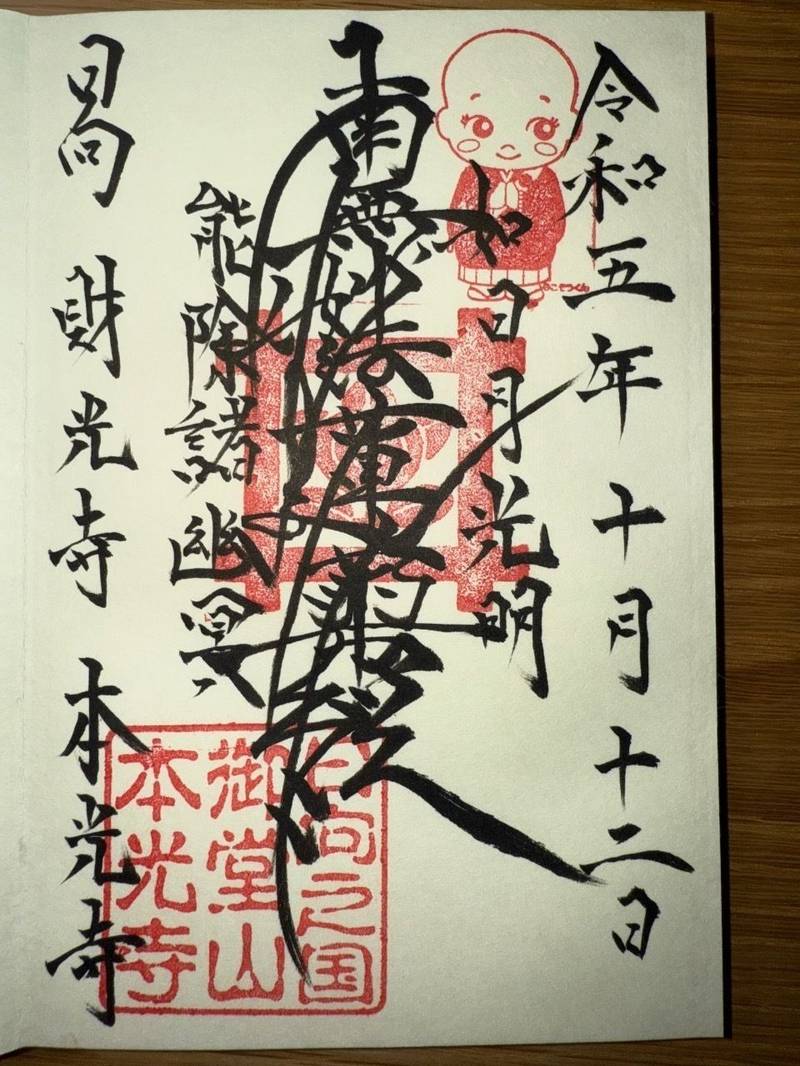 令和五年十月十二日
如日月光明
南無妙法蓮華経
能除諸幽冥
日向 財光寺 本光寺
日向之国
御堂山
本光寺